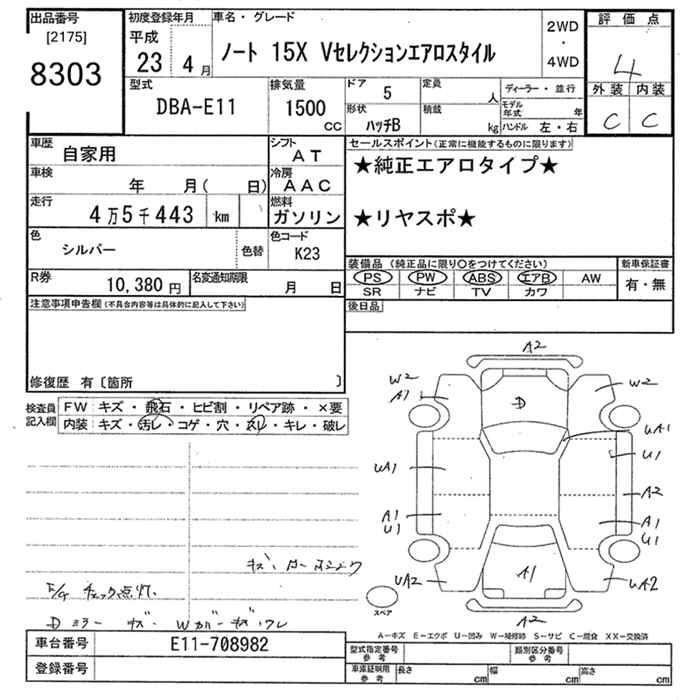 出品番号 初度登録年月 車名・グレード 2WD ・ 4WD 評価点
[2175] 平成
8303 23年 4月 ノート 15X Vセレクションエアロスタイル 4
型式 排気量 ドア 5 定員 人 ディーラー・並行 外装 内装
DBA-E11 1500 CC 形状 ハッチB 積載 kg モデル年式 年 C C
ハンドル 左・右
車歴 自家用 シフト AT セールスポイント(正常に機能するものに限ります)
車検 年 月( 日) 冷房 AAC ★純正エアロタイプ★
走行 4万5千443 km 燃料 ガソリン ★リヤスポ★
色 シルバー 色替 色コード K23
装備品(純正品に限り○をつけてください) 新車保証書
R券 10,380円 名変通知期限 月 日 PS PW ABS エアB AW 有・無
SR ナビ TV カワ
注意事項申告欄(不具合内容等は具体的に記入して下さい) 後日品
修復歴 有〔箇所 〕
検査員記入欄 FW: キズ・飛石・ヒビ割・リペア跡・×要
内装: キズ・汚レ・コゲ・穴・スレ・キレ・破レ
A2
W2 W2
A1 D
UA1
UA1 U1
A2
A1 A1
U1 U1
UA2 A1 UA2
スペア A2
E/G チェック点灯.
Dミラー キズ
A-キズ E-エクボ U-凹み W-補修跡 S-サビ C-腐食 XX-交換済
車台番号 E11-708982 型式指定番号 参考 類別区分番号 参考
登録番号 車庫証明用 参考 長さ cm 幅 cm 高さ cm